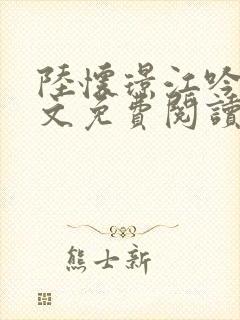 陸懷璟江吟
文免費閱讀
熊士新